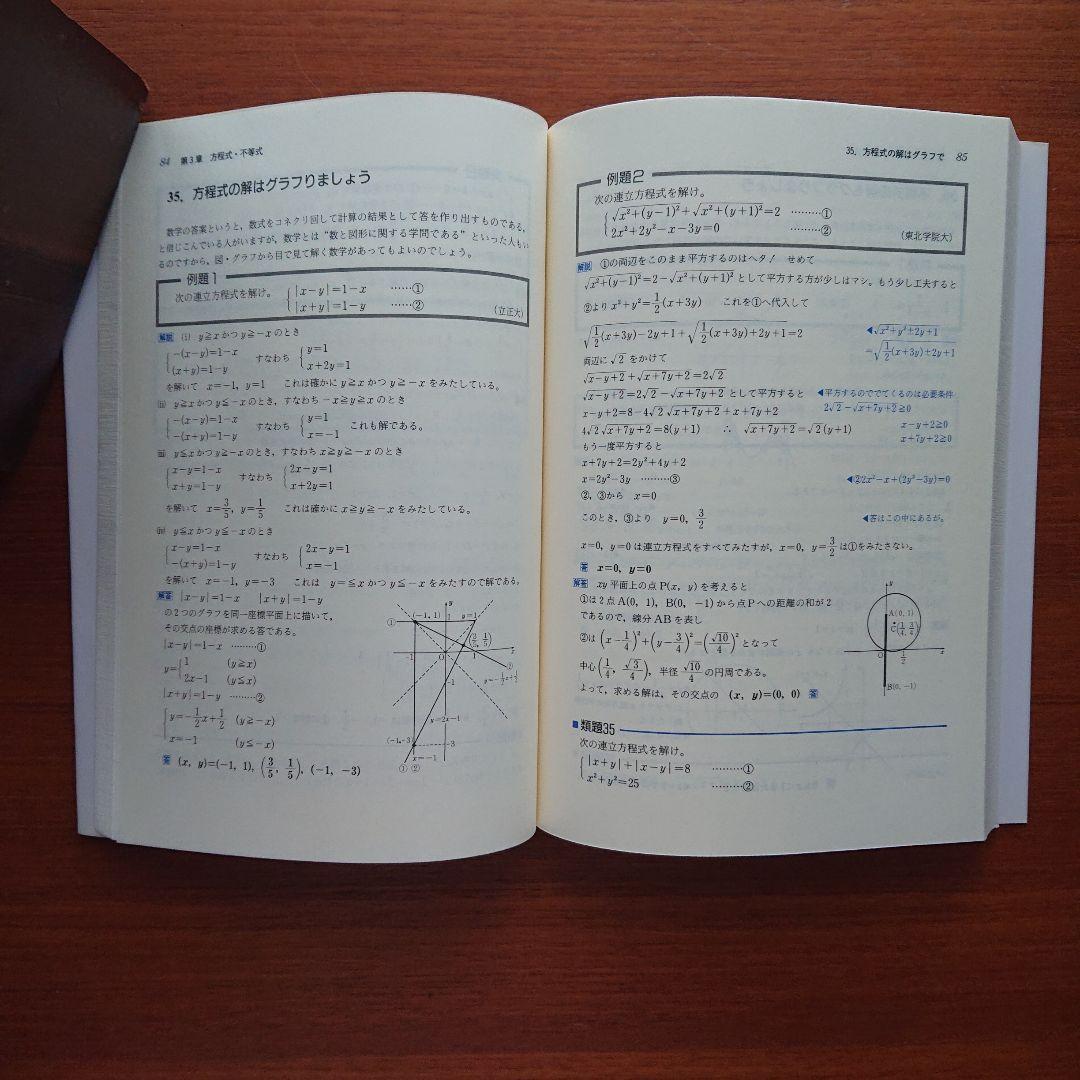 84 第3章 方程式・不等式
35. 方程式の解はグラフりましょう
数学の答案というと、数式をコネクリ回して計算の結果として答を作り出すものである、
と信じこんでいる人がいますが、数学とは“数と図形に関する学問である”といった人もい
るのですから、図・グラフから目で見て解く数学があってもよいのでしょう。
例題1
次の連立方程式を解け。 {|x−y|=1−x ……①
|x+y|=1−y ……②
(立正大)
解説 (i) y≧xかつy≧−xのとき
{−(x−y)=1−x すなわち {y=1
(x+y)=1−y x+2y=1
を解いて x=−1, y=1 これは確かにy≧xかつy≧−xをみたしている。
(ii) y≧xかつy≦−xのとき, すなわち −x≧y≧xのとき
{−(x−y)=1−x すなわち {y=1 これも解である。
−(x+y)=1−y x=−1
(iii) y≦xかつy≧−xのとき, すなわちx≧y≧−xのとき
{x−y=1−x すなわち {2x−y=1
x+y=1−y x+2y=1
を解いて x=3/5, y=1/5 これは確かにx≧y≧−xをみたしている。
(iv) y≦xかつy≦−xのとき
{x−y=1−x すなわち {2x−y=1
−(x+y)=1−y x=−1
を解いて x=−1, y=−3 これは y=≦xかつy≦−xをみたすので解である。
解答 |x−y|=1−x |x+y|=1−y
の2つのグラフを同一座標平面上に描いて,
その交点の座標が求める答である。
|x−y|=1−x ………①
y={1 (y≧x)
2x−1 (y≦x)
|x+y|=1−y ………②
{y=−1/2x+1/2 (y≧−x)
x=−1 (y≦−x)
答 (x, y)=(−1, 1), (3/5, 1/5), (−1, −3)
(−1, 1)
y
y=1
①
(3/5, 1/5)
−1
O
1
x
②
y=−1/2x+1/2
−1
y=2x−1
(−1,−3)
−3
x=−1
① ②
35. 方程式の解はグラフで 85
例題2
次の連立方程式を解け。
{√x²+(y−1)²+√x²+(y+1)²=2 ………①
2x²+2y²−x−3y=0 ………②
(東北学院大)
解説 ①の両辺をこのまま平方するのはヘタ! せめて
√x²+(y−1)²=2−√x²+(y+1)² として平方する方が少しはマシ。もう少し工夫すると
②より x²+y²=1/2(x+3y) これを①へ代入して
√1/2(x+3y)−2y+1+√1/2(x+3y)+2y+1=2
◀√x²+y²±2y+1
=√1/2(x+3y)±2y+1
両辺に√2をかけて
√x−y+2+√x+7y+2=2√2
√x−y+2=2√2−√x+7y+2 として平方すると
◀平方するのででてくるのは必要条件
x−y+2=8−4√2√x+7y+2+x+7y+2
2√2−√x+7y+2≧0
4√2√x+7y+2=8(y+1) ∴ √x+7y+2=√2(y+1)
x−y+2≧0
x+7y+2≧0
もう一度平方すると
x+7y+2=2y²+4y+2
x=2y²−3y ………③
◀②2x²−x+(2y²−3y)=0
②, ③から x=0
このとき, ③より y=0, 3/2
◀答はこの中にあるが。
x=0, y=0は連立方程式をすべてみたすが, x=0, y=3/2は①をみたさない。
答 x=0, y=0
解答 xy平面上の点P(x, y)を考えると
①は2点A(0, 1), B(0, −1)から点Pへの距離の和が2
であるので, 線分ABを表し
②は (x−1/4)²+(y−3/4)²=(√10/4)² となって
中心(1/4, √3/4), 半径√10/4の円周である。
よって, 求める解は, その交点の (x, y)=(0, 0) 答
y
A(0, 1)
C(1/4, 3/4)
O
1/2
x
B(0, −1)
類題35
次の連立方程式を解け。
{|x+y|+|x−y|=8 ………①
x²+y²=25 ………②